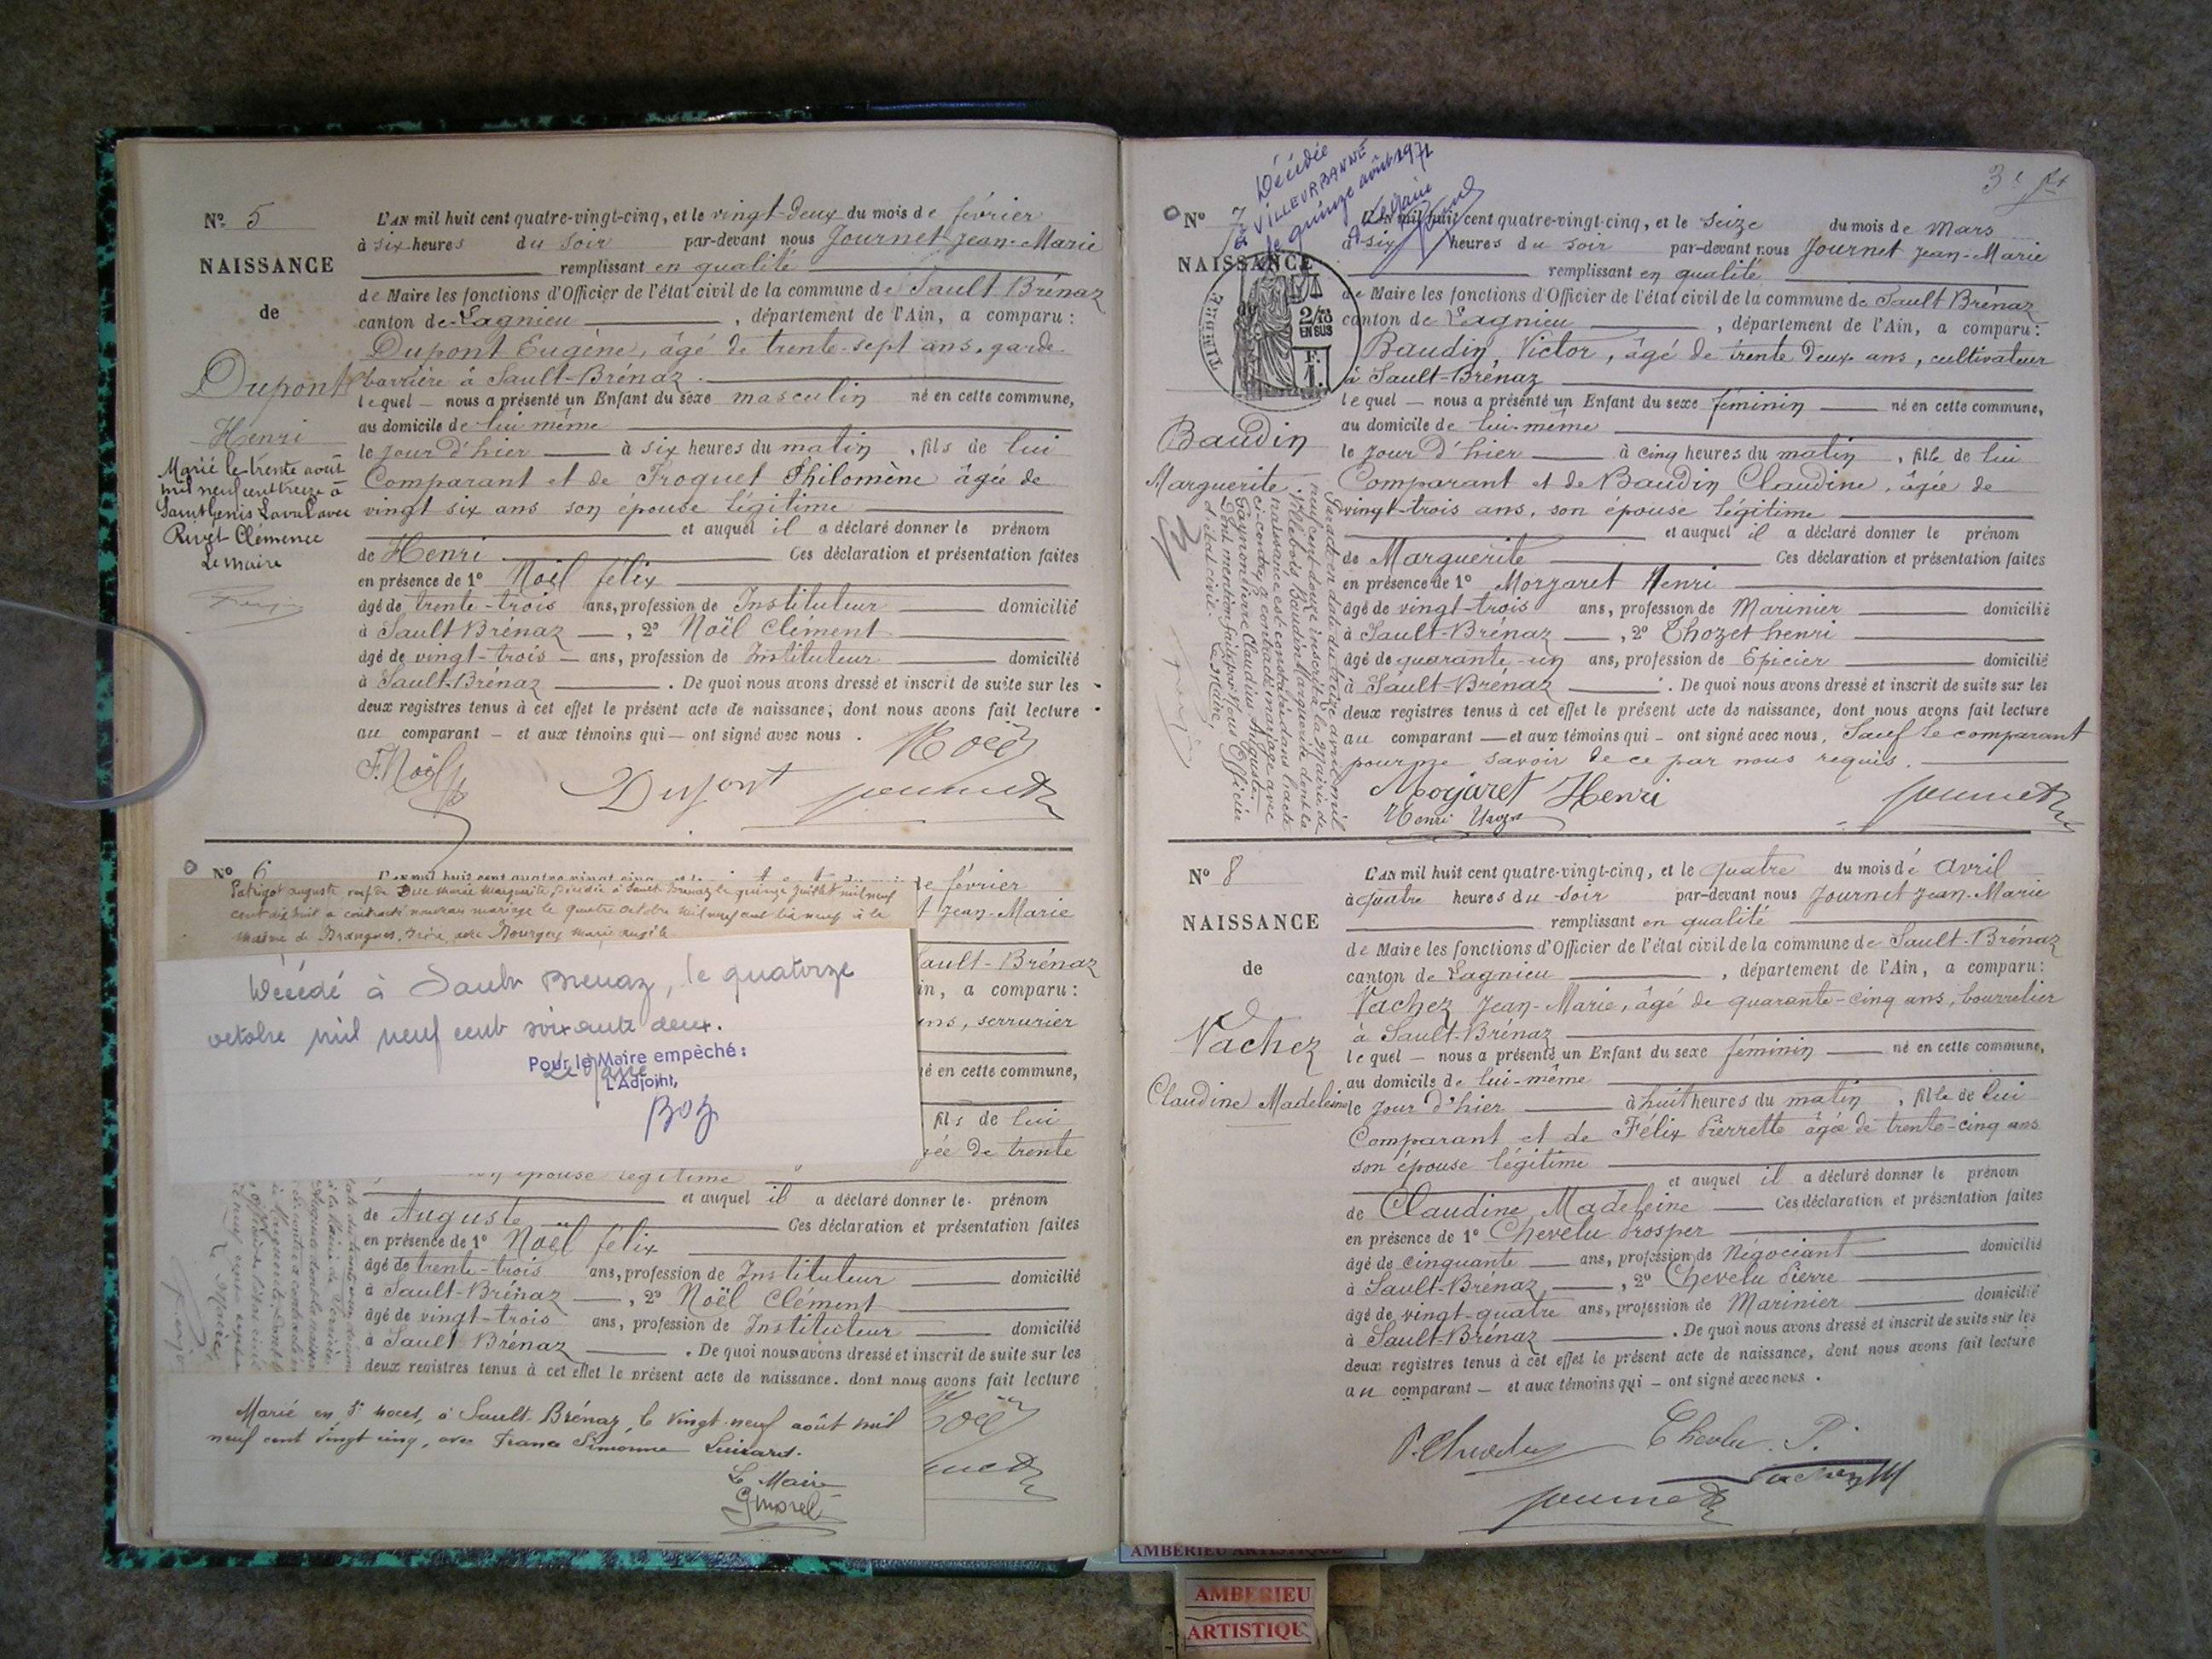 Nº 5
NAISSANCE
de
Dupont
Henri
Marié le trente août
mil neuf cent treize à
Saint Genis Laval avec
Rivet Clémence
Le maire
L'AN mil huit cent quatre-vingt-cinq, et le vingt-deux du mois de février
à six heures du soir par-devant nous Journet Jean-Marie
remplissant en qualité
de Maire les fonctions d'Officier de l'état civil de la commune de Sault-Brénaz
canton de Lagnieu, département de l'Ain, a comparu :
Dupont Eugène, âgé de trente-sept ans, garde
barrière à Sault-Brénaz.
lequel — nous a présenté un Enfant du sexe masculin né en cette commune,
au domicile de lui même
le jour d'hier à six heures du matin, fils de lui
Comparant et de Froquet Philomène âgée de
vingt six ans son épouse légitime
et auquel il a déclaré donner le prénom
de Henri Ces déclaration et présentation faites
en présence de 1º Noël félix
âgé de trente-trois ans, profession de Instituteur domicilié
à Sault-Brénaz, 2º Noël Clément
âgé de vingt-trois ans, profession de Instituteur domicilié
à Sault-Brénaz. De quoi nous avons dressé et inscrit de suite sur les
deux registres tenus à cet effet le présent acte de naissance, dont nous avons fait lecture
au comparant — et aux témoins qui — ont signé avec nous.
F. Noël
Noël
Dupont
Journet
Nº 6
de février
Jean-Marie
Patigot auguste veuf de
Marie Marguerite, décédée à Sault Brénaz le quinze juillet mil neuf
cent dix huit a contracté nouveau mariage le quatre octobre mil neuf cent dix neuf à la
mairie de Brangues, Isère, avec Mourgey marie angèle
Décédé à Sault Brenaz, le quatorze
octobre mil neuf cent soixante deux.
Le Maire
Pour le Maire empêché :
L'Adjoint,
Boz
Sault-Brénaz
in, a comparu :
ans, serrurier
né en cette commune,
fils de lui
gée de trente
épouse légitime
et auquel il a déclaré donner le prénom
de Auguste Ces déclaration et présentation faites
en présence de 1º Noël félix
âgé de trente-trois ans, profession de Instituteur domicilié
à Sault-Brénaz, 2º Noël Clément
âgé de vingt-trois ans, profession de Instituteur domicilié
à Sault Brénaz. De quoi nous avons dressé et inscrit de suite sur les
deux registres tenus à cet effet le présent acte de naissance, dont nous avons fait lecture
Marié en 3es noces, à Sault-Brénaz, le vingt-neuf août mil
neuf cent vingt cinq, avec France Simonne Luizard.
Le Maire
G Morel
3e ft
Décédée
à VILLEURBANNE
le quinze août 1971
Le Maire
Nº 7
NAISSANCE
de
TIMBRE
2/10
EN SUS
1 F.
Baudin
Marguerite
L'AN mil huit cent quatre-vingt-cinq, et le seize du mois de Mars
à six heures du soir par-devant nous Journet Jean-Marie
remplissant en qualité
de Maire les fonctions d'Officier de l'état civil de la commune de Sault Brénaz
canton de Lagnieu, département de l'Ain, a comparu :
Baudin Victor, âgé de trente deux ans, cultivateur
à Sault-Brénaz
lequel — nous a présenté un Enfant du sexe féminin né en cette commune,
au domicile de lui-même
le jour d'hier à cinq heures du matin, fille de lui
Comparant et de Baudin Claudine, âgée de
vingt-trois ans, son épouse légitime
et auquel il a déclaré donner le prénom
de Marguerite Ces déclaration et présentation faites
en présence de 1º Morgaret Henri
âgé de vingt-trois ans, profession de Marinier domicilié
à Sault-Brénaz, 2º Thozet henri
âgé de quarante-un ans, profession de Epicier domicilié
à Sault-Brénaz. De quoi nous avons dressé et inscrit de suite sur les
deux registres tenus à cet effet le présent acte de naissance, dont nous avons fait lecture
au comparant — et aux témoins qui — ont signé avec nous, Sauf le comparant
pour ne savoir de ce par nous requis.
Par acte en date du treize avril mil
neuf cent douze inscrit à la mairie de
Villebois Baudin Marguerite dont la
naissance est constatée dans l'acte
ci-contre, a contracté mariage avec
Claudius Auguste.
Dont mention faite par Nous Officier
d'état civil. Le Maire,
Morgaret Henri
Journet
Nº 8
NAISSANCE
de
Vachez
Claudine Madeleine
L'AN mil huit cent quatre-vingt-cinq, et le quatre du mois de Avril
à quatre heures du soir par-devant nous Journet Jean-Marie
remplissant en qualité
de Maire les fonctions d'Officier de l'état civil de la commune de Sault-Brénaz
canton de Lagnieu, département de l'Ain, a comparu :
Vachez Jean-Marie, âgé de quarante-cinq ans, bourrelier
à Sault-Brénaz
lequel — nous a présenté un Enfant du sexe féminin né en cette commune,
au domicile de lui-même
le jour d'hier à huit heures du matin, fille de lui
Comparant et de Félix Pierrette âgée de trente-cinq ans
son épouse légitime
et auquel il a déclaré donner le prénom
de Claudine Madeleine Ces déclaration et présentation faites
en présence de 1º Chevelu Prosper
âgé de cinquante ans, profession de Négociant domicilié
à Sault-Brénaz, 2º Chevelu Pierre
âgé de vingt-quatre ans, profession de Marinier domicilié
à Sault-Brénaz. De quoi nous avons dressé et inscrit de suite sur les
deux registres tenus à cet effet le présent acte de naissance, dont nous avons fait lecture
au comparant — et aux témoins qui — ont signé avec nous.
P. Chevelu
Chevelu P.
Vachez JM
Journet
AMBERIEU ARTISTIQUE
AMBERIEU
ARTISTIQU